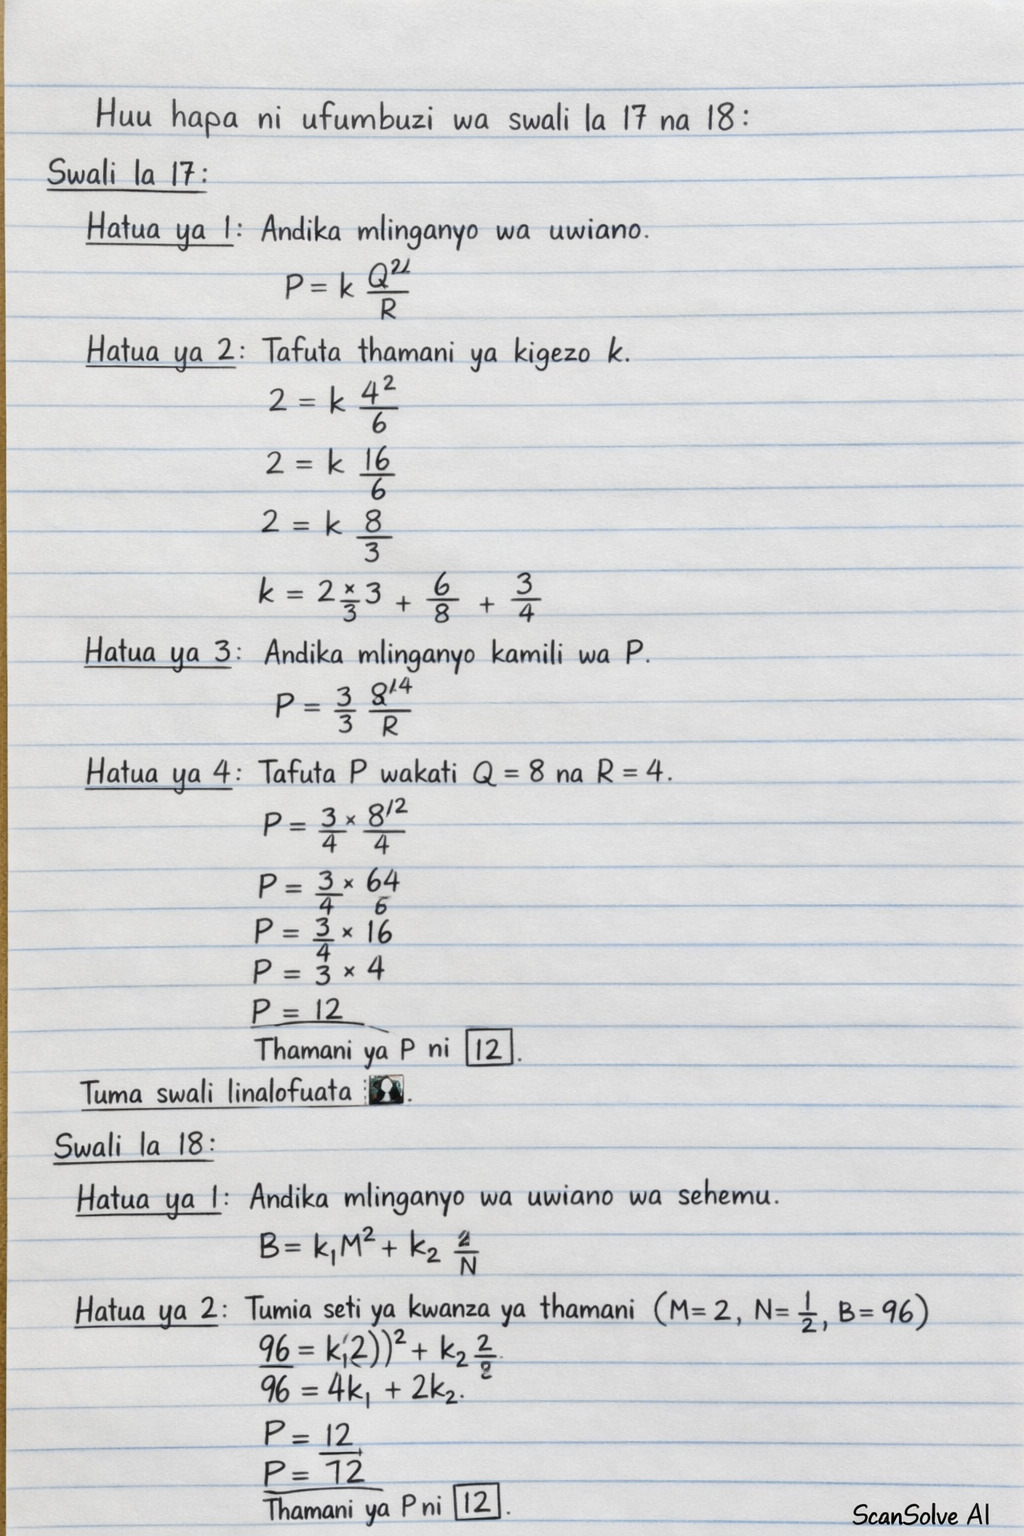 Huu hapa ni ufumbuzi wa swali la 17 na 18:
Swali la 17:
Hatua ya 1: Andika mlinganyo wa uwiano.
P = k Q²/R
Hatua ya 2: Tafuta thamani ya kigezo k.
2 = k 4²/6
2 = k 16/6
2 = k 8/3
k = 2 × 3/3 + 6/8 + 3/4
Hatua ya 3: Andika mlinganyo kamili wa P.
P = 3/3 8¹⁴/R
Hatua ya 4: Tafuta P wakati Q = 8 na R = 4.
P = 3/4 × 8^12/4
P = 3/4 × 64/6
P = 3/4 × 16
P = 3 × 4
P = 12
Thamani ya P ni 12.
Tuma swali linalofuata
Swali la 18:
Hatua ya 1: Andika mlinganyo wa uwiano wa sehemu.
B = k₁M² + k₂ 2/N
Hatua ya 2: Tumia seti ya kwanza ya thamani (M = 2, N = 1/2, B = 96)
96 = k₁(2))² + k₂ 2/2
96 = 4k₁ + 2k₂.
P = 12
P = 72
Thamani ya P ni 12.
ScanSolve AI